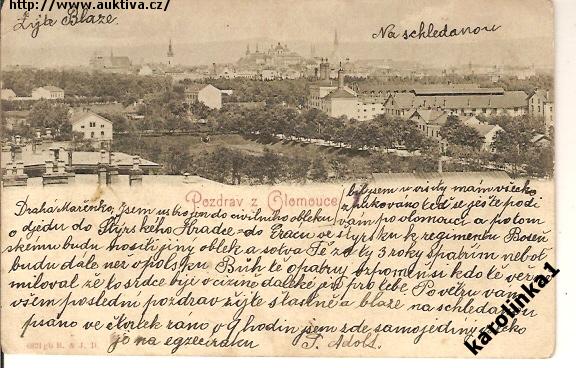 http://www.auktiva.cz/
Žijte Blaze.
Na schledanou
Pozdrav z Olomouce
Drahá Mařenko, Jsem ustrojen do civilního obleku
o djedu do Štyrského Hradce do Gracu ve štyrsku k regimentu
skému budu nositi jiný oblek a sotva Tě za ty 3 roky spatřím neboť
budu dále než v polsku Bůh tě opatruj vzpomeň si kdo tě věrně
miloval že to srdce bije v cizině daleké pro tebe
všem poslední pozdrav žijte šťastně a blaze na schledanou
psáno ve čtvrtek ráno o 9 hodin jsem zde samojediný
jo na egzecíraku F. Adolf.
bylysem u visity mám všecko
zblikováno teď se ještě podí
vám po olomouci a potom
6821 gb R. & J. D.
karolinka1